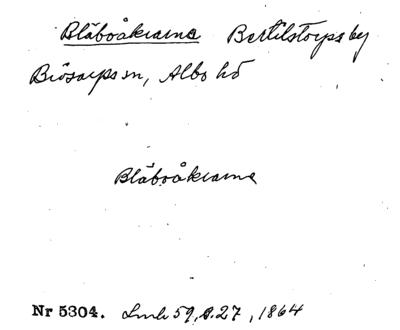 Blåboåkrarna Bertilstorps by
Brösarps sn, Albo hd
Blåboåkrarna
Nr 5304. Lmh 59, s. 27, 1864